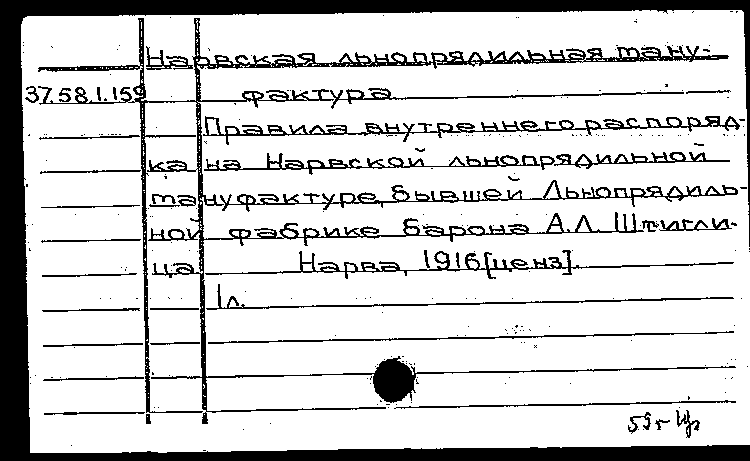 Нарвская льнопрядильная ману-
37.58.1.159 фактура
Правила внутреннего распоряд-
ка на Нарвской льнопрядильной
мануфактуре, бывшей Льнопрядиль-
ной фабрике барона А.Л. Штигли-
ца Нарва, 1916 [ценз].
1 л.